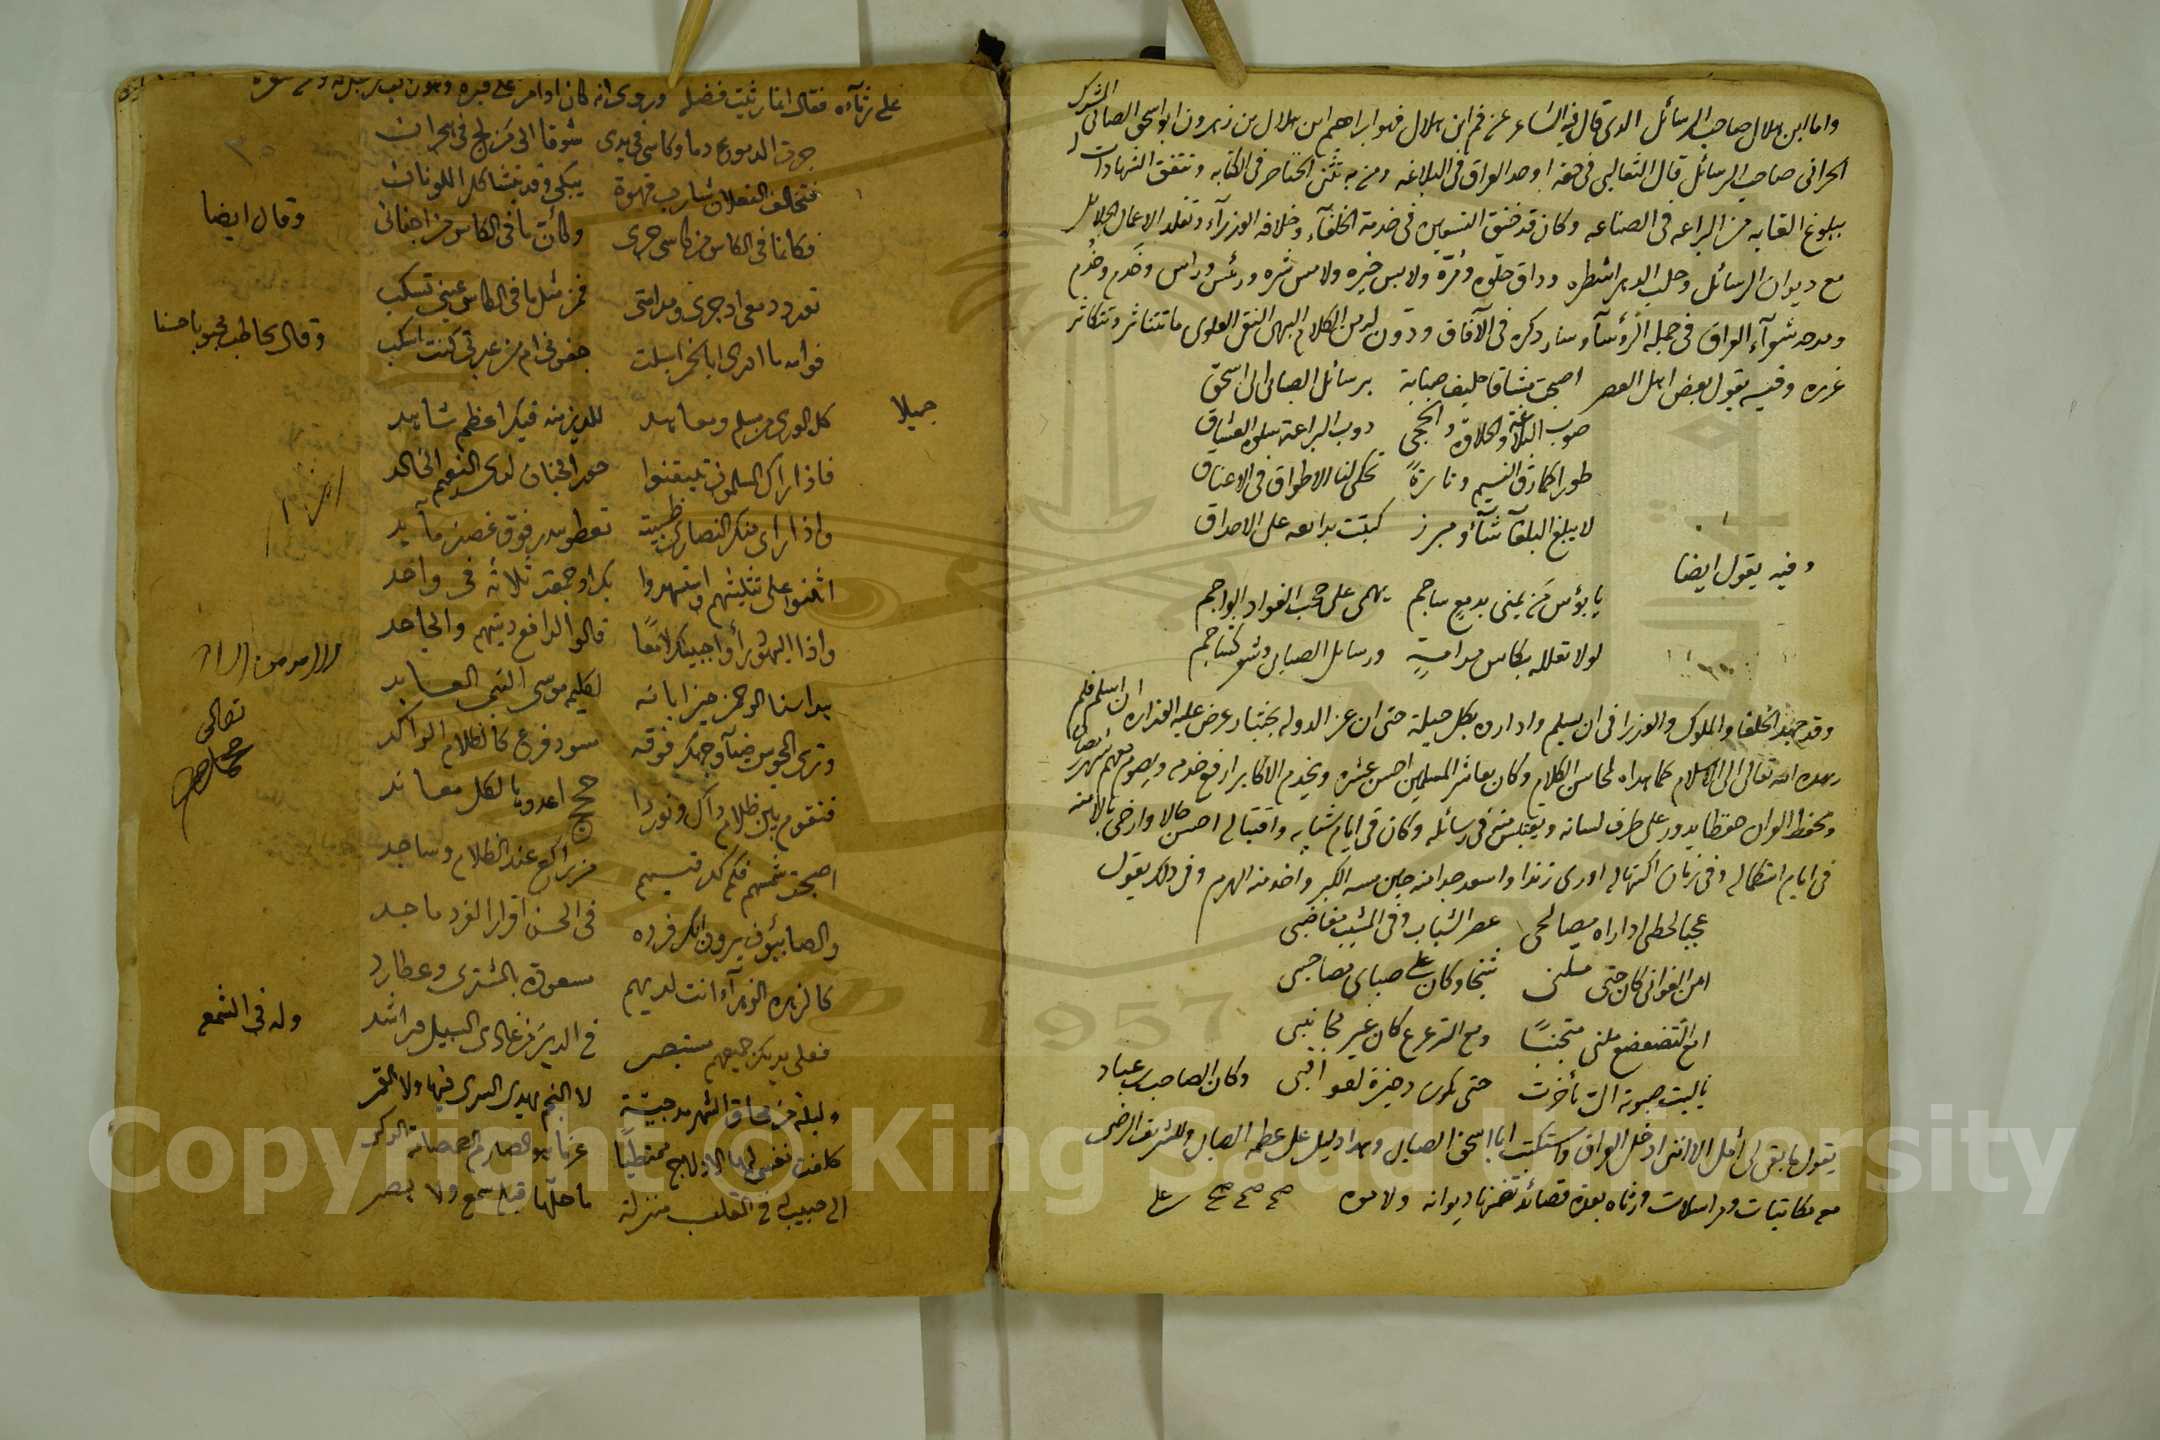 واما ابن هلال صاحب الرسائل الذي قال فيه الشاعر عن فم ابن هلال فهو ابراهيم ابن هلال بن زهرون ابو اسحق الصابي المشرك
الحراني صاحب الرسائل قال الثعالبي في حقه اوحد العراق في البلاغه ومن به تثنى الخناصر في الكتابه وتتفق الشهادات له
ببلوغ الغايه من البراعه في الصناعه وكان قد خنق التسعين في خدمة الخلفآء وخلافه الوزرآء وتقلد الاعمال الجلائل
مع ديوان الرسائل وحلب الدهر اشطره وذاق حلوه ومره ولابس خيره ولامس شره ورئس ورأس وخدم وخُدم
ومدحه شعرآء العراق في جمله الرؤسآ وسار ذكره في الآفاق ودون له من الكلام البهى النقى العلوى ما تتناثر وتتكاثر
غرره وفيه يقول بعض اهل العصر اصبحت مشتاقا حليف صبابة برسائل الصابى ابى اسحق
صوب البلاغة والحلاوة والحجى ذوب البراعة سلوة العشاق
طورا كما رق النسيم وتارةً تحكى لنا الاطواق في الاعناق
لا يبلغ البلغآ شأو مبرز كتبت بدائعه على الاحداق
وفيه يقول ايضا
يا بؤس من يمنى بدمع ساجم يهمى على حجب الفواد الواجم
لولا تعلله بكاس مدامةٍ ورسائل الصابى وشعر كشاجم
وقد جهد الخلفا والملوك والوزرا في ان يسلم واداروه بكل حيلة حتى ان عز الدوله بختيار عرض عليه الوزاره ان اسلم فلم
يهده الله تعالى الى الاسلام كما هداه لمحاسن الكلام وكان يعاشر المسلمين احسن عشره ويخدم الاكابر ارفع خدمه ويصوم معهم شهر رمضان
ويحفظ القران حفظا يدور على طرف لسانه ويقتبس منه في رسائله وكان في ايام شبابه واقتباله احسن حالا وارخى بالا منه
في ايام اكتهاله وفي زمان اكتهاله اورى زندا واسعد جدا منه حين مسه الكبر واخذ منه الهرم وفي ذلك يقول
عجبا لحظى اذ اراه مصالحى عصر الشباب وفي المشيب مغاضبى
امن الغوانى كان حتى ملنى شيخا وكان على صباى مصاحبى
امع التضعضع ملنى متجنبًا ومع الترعرع كان غير مجانبى
يا ليت صبوته الى تأخرت حتى تكون ذخيرة لعواقبى وكان الصاحب بن عباد
يقول ما بقى لى أمل الا ان ادخل العراق واستكتب ابا اسحق الصابى وهذا دليل على عظمه الصابى وللشريف الرضى
مع مكاتبات ومراسلات ورثاه بعدة قصائد تضمنها ديوانه ولامو
على رثآءه فقال انما رثيت فضله وروى انه كان اذا مر على قبره
جرت الدموع دما وكاسى في يدى شوقا الى من لج في هجرانى
فتخالف الفعلان شارب قهوة يبكى وقد يتشاكل اللونان
فكانما في الكاس من كاسى جرى وكأن ما في الكاس من اجفانى
وقال ايضا
تورد دمعى اذ جرى ومدامتى فمن مثل ما في الكاس عينى تسكب
فوالله ما ادرى ابالخمر اسبلت جفونى ام من عبرتى كنت اشرب
وقال يخاطب محبوبا حسنا
جميلا
كل الورى من مسلم ومعاهد للدين منه فيك اعظم شاهد
فاذا رآك المسلمون تيقنوا حور الجنان لدى النعيم الخالد
واذا راى منك النصارى ظبية تعطو ببدر فوق غصن مآيد
اثنوا على تثليثهم واستشهدوا بك اذ جمعت ثلاثة في واحد
واذا اليهود رأوا جبينك لامعًا قالوا لدافع دينهم والجاحد
هذا سنا الرحمن حين ابانه لكليمه موسى النبى العابد
وترى المجوس ضيآ وجهك فوقه مسود فرع كالظلام الراكد
فتقوم بين ظلام ذاك ونور ذا حجج اعدوها لكل معاند
اصبحت شمسهم فكم لك فيهم من راكع عند الظلام وساجد
والصابئون يرون انك فرده في الحسن اقرارا لفرد ماجد
كالزهره الزهرآء انت لديهم مسعودة بالمشترى وعطارد
فعلى يديك جميعهم مستبصر في الدين من غاوى السبيل وراشد
وله في الشمع
وليلة من محاق الشهر مدجية لا النجم يهدى السرى فيها ولا القمر
كلفت نفسى بها الادلاج ممتطيًا عزما هو الصارم الصمصامة الذكر
الى حبيب له في القلب منزلة ما حلها قبله سمع ولا بصر